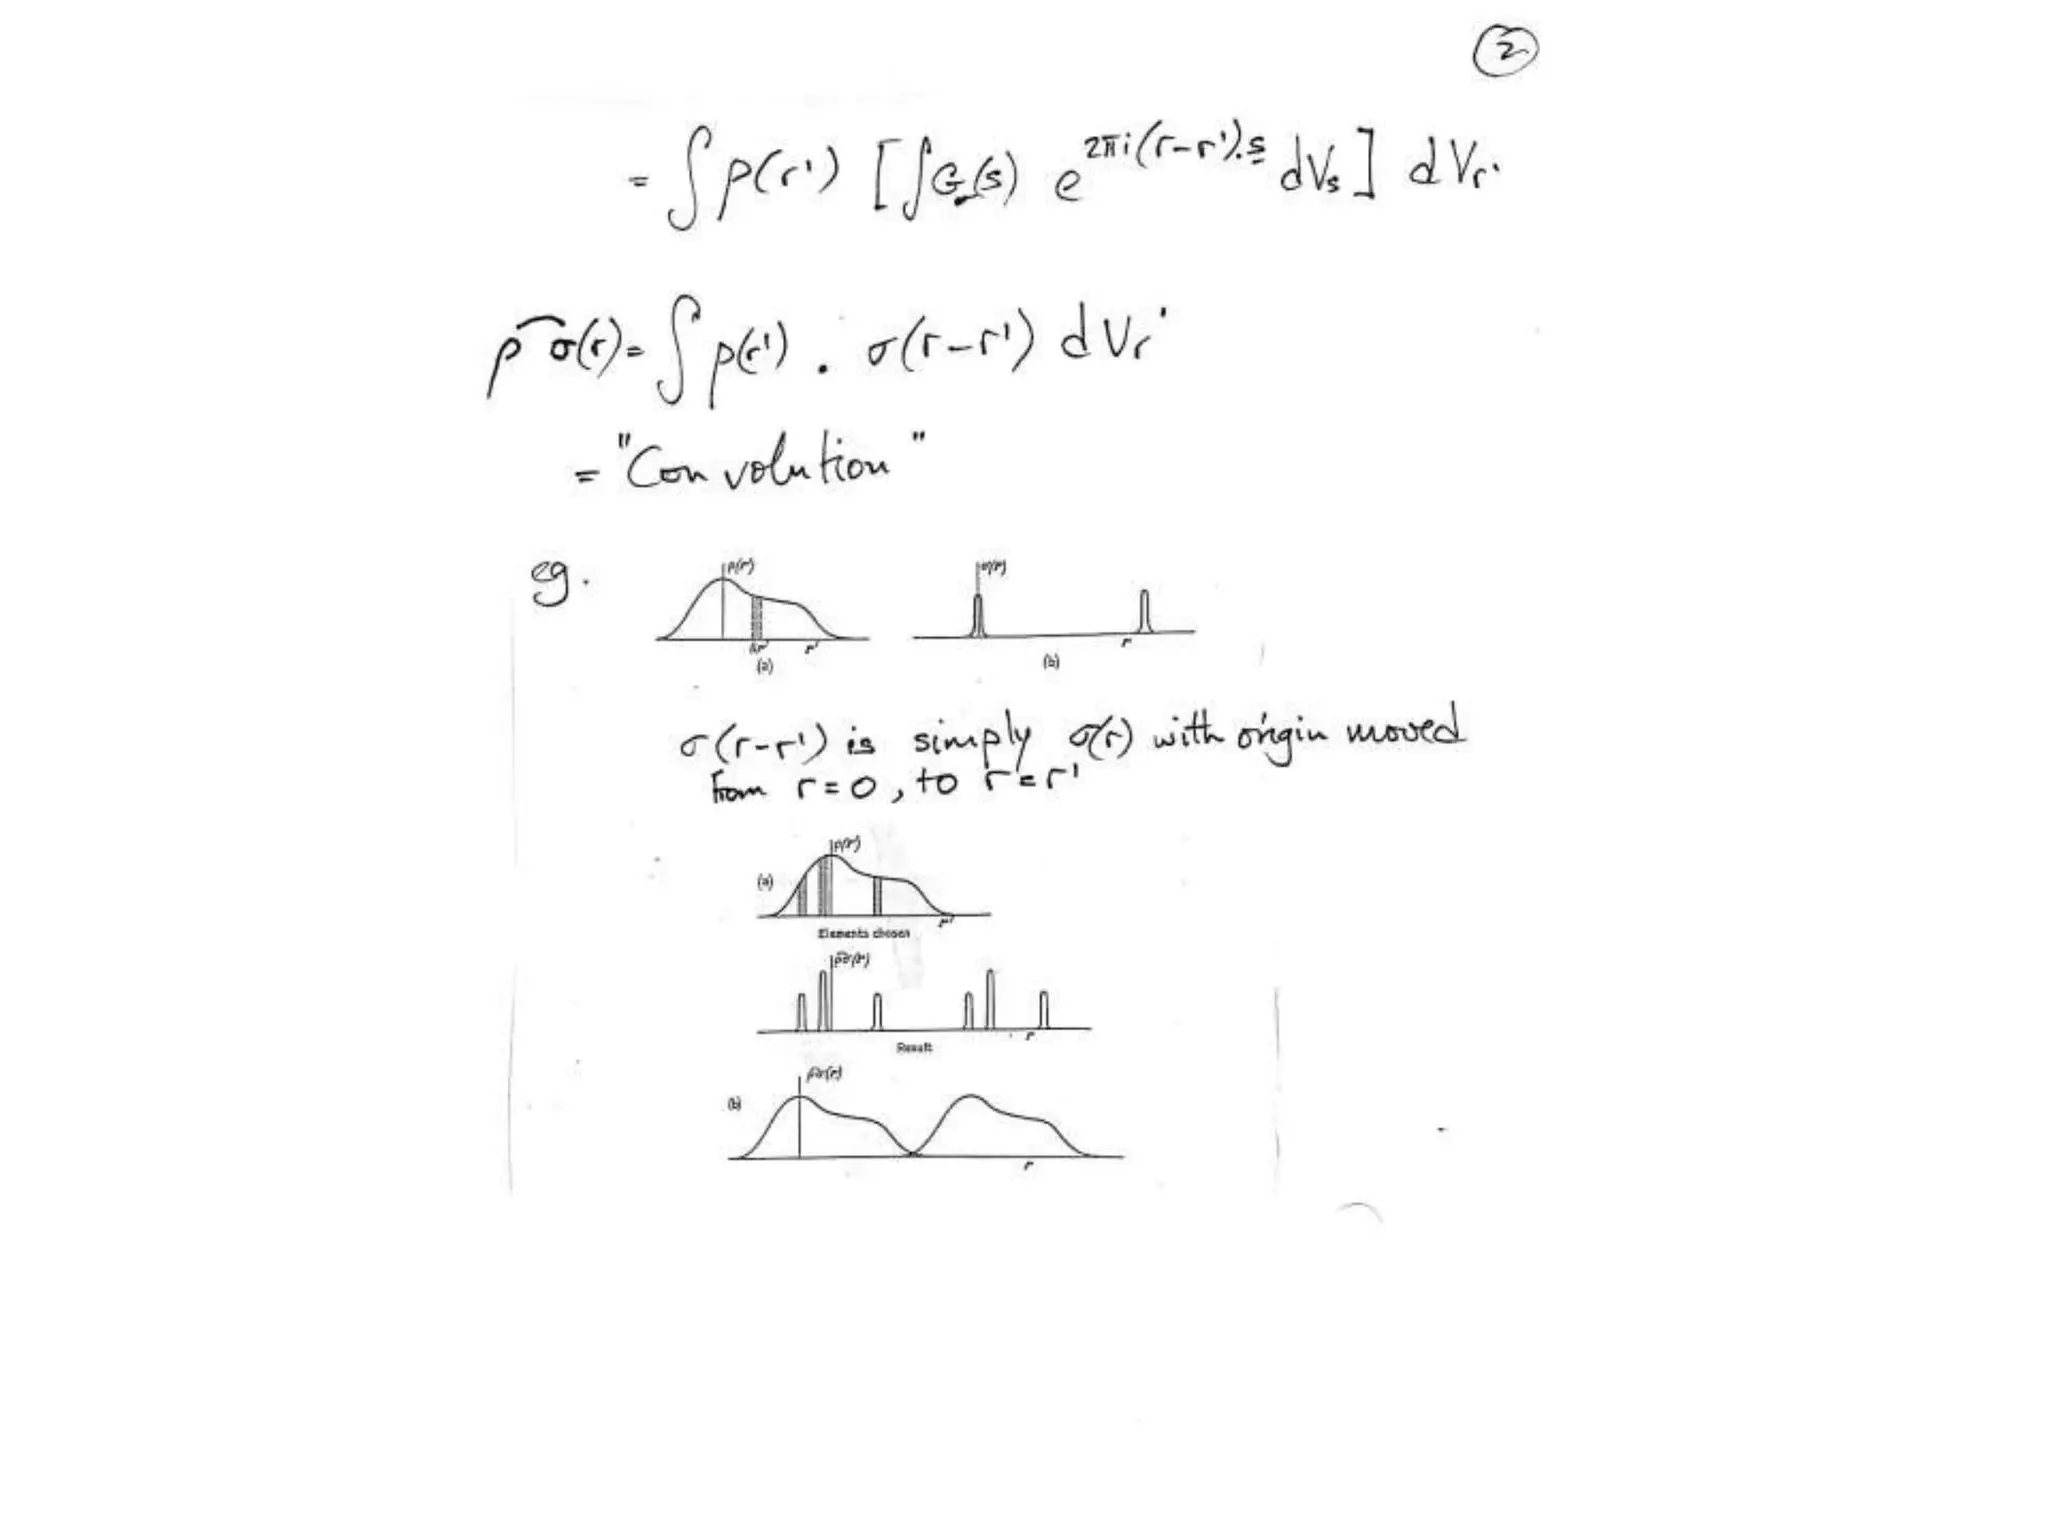 2
= ∫ρ(r') [∫G(s) e^{2πi(r-r').s} dVs] dVr'
ρ͡σ(r) = ∫ρ(r') . σ(r-r') dVr'
= "Convolution"
eg.
ρ(r') σ(r)
dr' r' r
(a) (b)
σ(r-r') is simply σ(r) with origin moved
from r=0, to r=r'
ρ(r')
(a)
r'
Elements chosen
ρ͡σ(r)
r
Result
ρ͡σ(r)
(b)
r